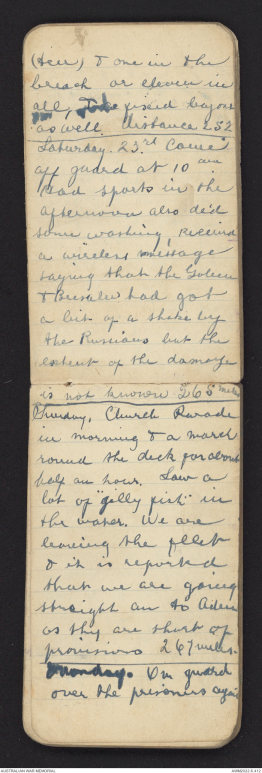 (ten) & one in the
breach or eleven in
all, fixed bayon
as well. distance 252
Saturday. 23rd Came
off guard at 10 am
Had sports in the
afternoon also did
some washing, Received
a wireless message
saying that the Goben
& Breslau had got
a bit of a shake by
the Russians but the
extent of the damage
is not known 265 miles
Church Parade
in morning & a march
round the deck for about
half an hour. Saw a
lot of "jelly fish" in
the water. We are
leaving the fleet
& it is reported
that we are going
straight on to Aden
as they are short of
provisions 267 miles.
Monday. On guard
over the prisoners again
AUSTRALIAN WAR MEMORIAL